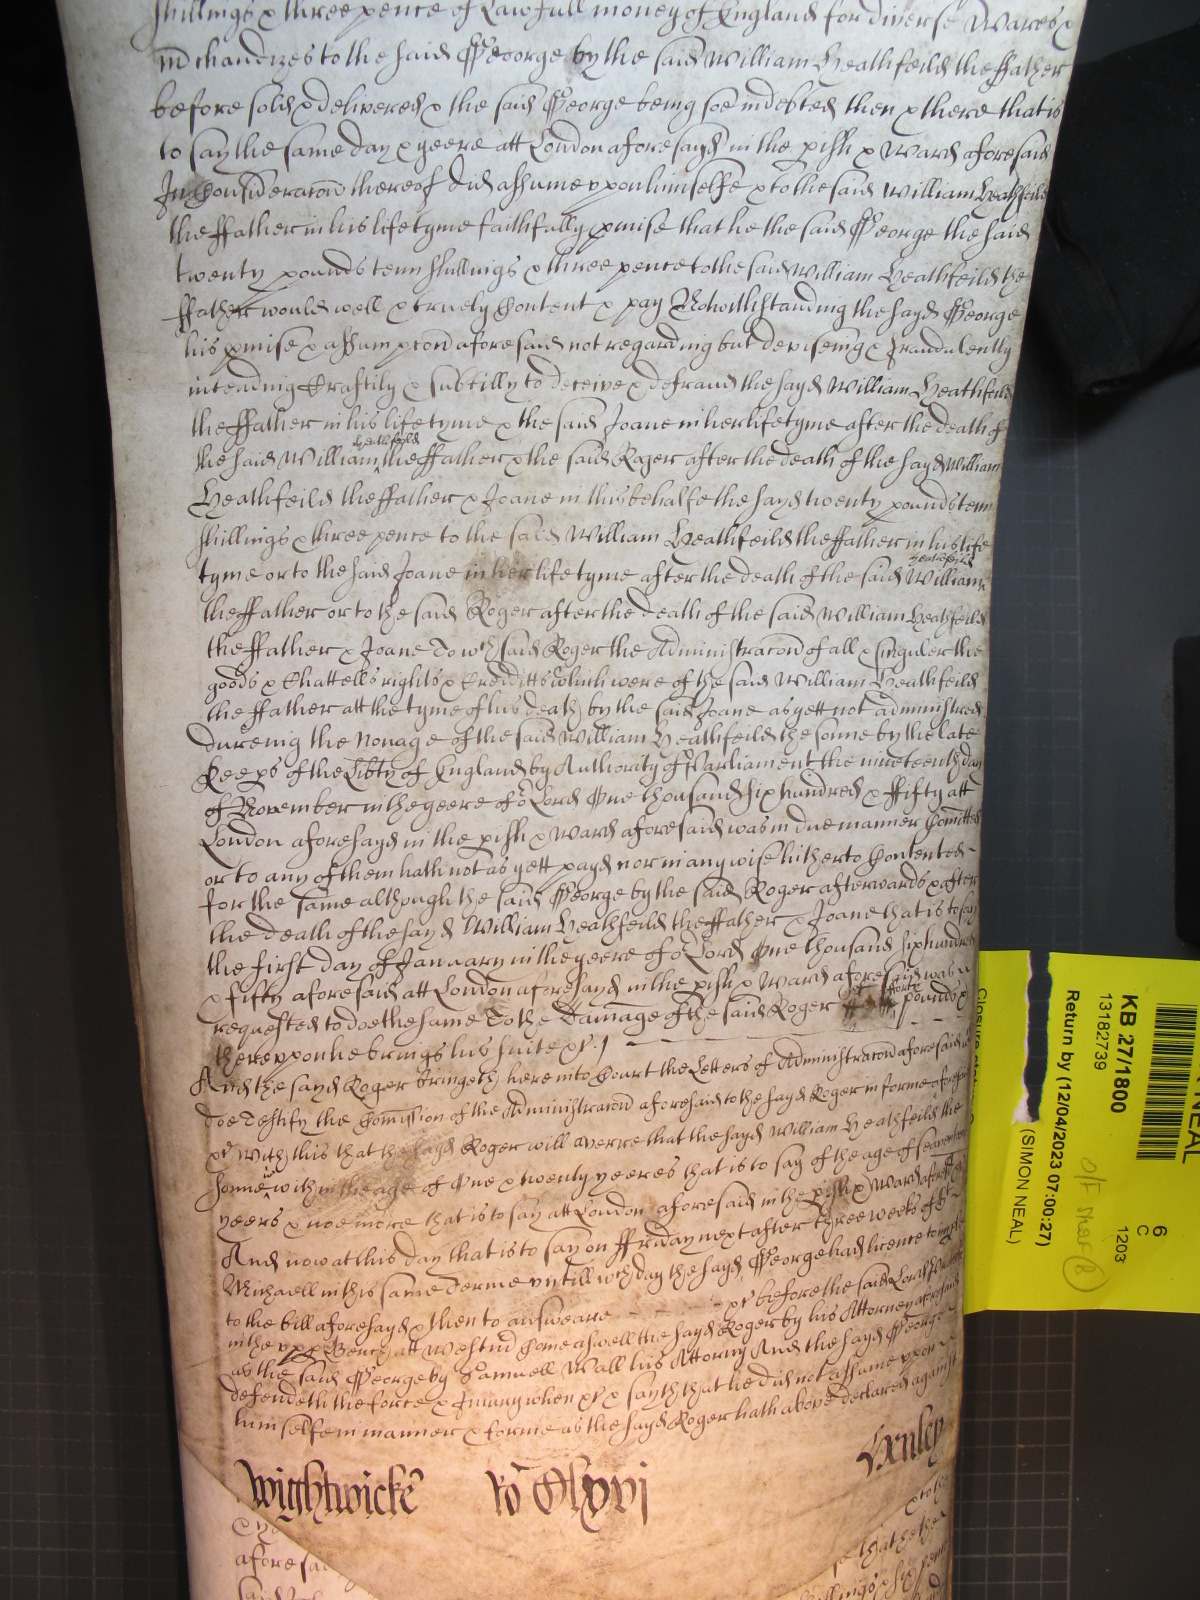 shillings & three pence of Lawfull money of England for diverse Wares &
mchandizes to the said George by the said William Heathfeild the ffather
before sold & delivered & the said George being soe indebted then & there that is
to say the same day & yeere att London aforesayd in the pish & Ward aforesaid
In Consideracon thereof did assume upon himselfe & to the said William Heathfeild
the ffather in his life tyme faithfully pmise that he the said George the said
twenty pounds tenn shillings & three pence to the said William Heathfeild the
ffather would well & truely Content & pay Notwithstanding the sayd George
his pmise & assumpcon aforesaid not regarding but deviseing & fraudulently
intending Craftily & subtilly to deceive & defraud the sayd William Heathfeild
the ffather in his life tyme & the said Joane in her life tyme after the death of
the said William Heathfeild the ffather & the said Roger after the death of the sayd William
Heathfeild the ffather & Joane in this behalfe the sayd twenty pounds tenn
shillings & three pence to the said William Heathfeild the ffather in his life
tyme or to the said Joane in her life tyme after the death of the said William Heathfeild
the ffather or to the said Roger after the death of the said William Heathfeild
the ffather & Joane To wch said Roger the Administracon of all & singuler the
goods & Chattells rights & Creditts which were of the said William Heathfeild
the ffather att the tyme of his death by the said Joane as yett not administred
dureing the Nonage of the said William Heathfeild the sonne by the late
Keeps of the Libty of England by Authority of Parliament the nineteenth day
of November in the yeere of or Lord One thousand six hundred & fifty att
London aforesayd in the pish & Ward aforesaid was in due manner Comitted
or to any of them hath not as yett payd nor in any wise hitherto Contented
for the same although the said George by the said Roger afterwards & after
the death of the sayd William Heathfeild the ffather & Joane that is to say
the first day of January in the yeere of or Lord One thousand six hundred
& fifty aforesaid att London aforesayd in the pish & Ward aforesayd was
requested to doe the same To the Damage of the said Roger of fforty pounds &
thereupon he brings his suite &c.
And the sayd Roger bringeth here into Court the Letters of Administracon aforesaid
doe Testify the Comission of the Administracon aforesaid to the sayd Roger in forme aforesaid
&c With this that the sayd Roger will averre that the sayd William Heathfeild the
sonne is within the age of One & twenty yeeres that is to say of the age of seaventeene
yeers & noe more that is to say att London aforesaid in the pish & Ward aforesaid
And now at this day that is to say on ffriday next after three weekes of St
Michaell in this same Terme untill wch day the sayd George had licence to imple
to the bill aforesayd & then to answeare &c before the said Lord
in the upp Bench att Westmr Come aswell the sayd Roger by his Attorney aforesaid
as the said George by Samuell Wall his Attorny And the sayd George
defendeth the force & Injury when &c & sayth that he did not assume upon
himselfe in manner & forme as the sayd Roger hath above declared against
Wightwicke Ro Clxvi Henley
& to th
aforesai
that he the
said
KB 27/1800
13182739
Return by (12/04/2023 07:00:27)
(SIMON NEAL)
NEAL
6
C
1203